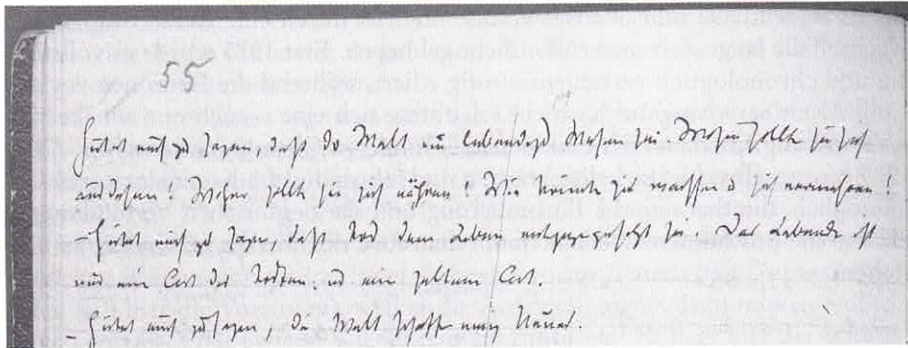 55
Hütet euch zu sagen, daß die Welt ein lebendiges Wesen sei. Wohin sollte sie sich
ausdehnen! Woher sollte sie sich nähren! Wie könnte sie wachsen u sich vermehren!
– Hütet euch zu sagen, daß Tod dem Leben entgegengesetzt sei. Das Lebende ist
nur eine Art des Todten: und eine seltene Art.
– Hütet euch zu sagen, die Welt schaffe ewig Neues.